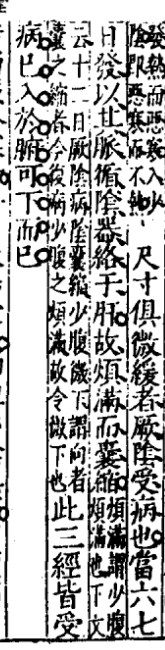 發熱而惡寒入少
陰即惡寒而不熱
尺寸俱微緩者厥陰受病也當六七
日發以其脈循陰器絡于肝故煩滿而囊縮
煩滿謂少腹
煩滿也下文
云十二日厥陰病陰囊縱少腹微下謂向者
囊之縮者今復病少腹之煩滿故令微下也
此三經皆受
病已入於腑可下而已